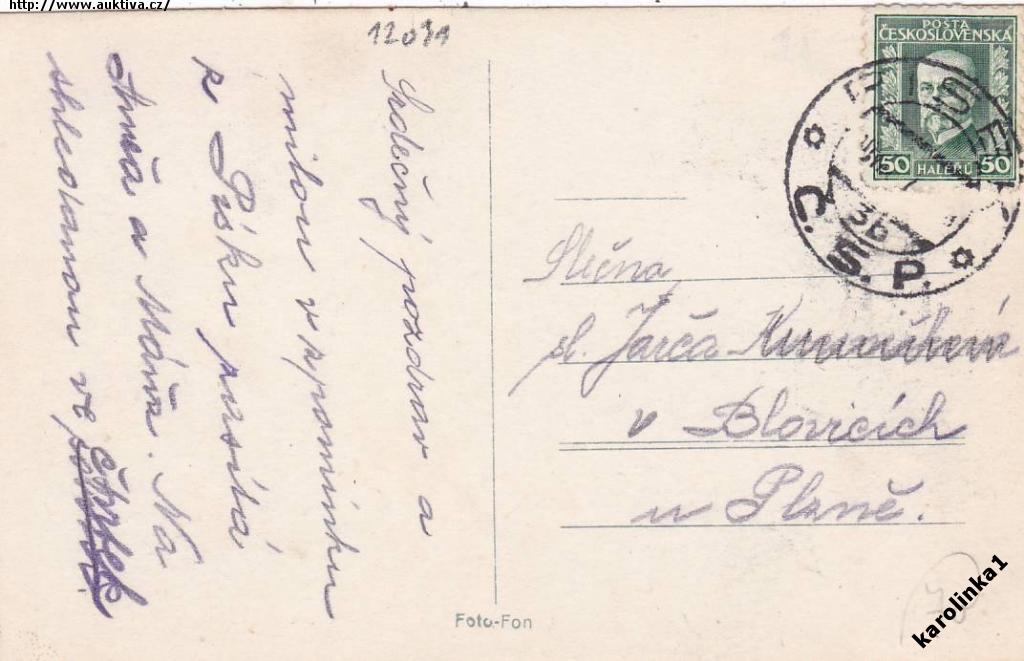 http://www.auktiva.cz/
12091
Srdečný pozdrav a
milou vzpomínku
z Písku posílá
Anuša a Máňa. Na
shledanou ve
čtvrtek
POŠTA
ČESKOSLOVENSKÁ
50 HALÉŘŮ 50
PÍSEK
Č.S.P.
3b
Slečna
sl. Jarča
v Blovicích
u Plzně.
Foto-Fon
karolinka1